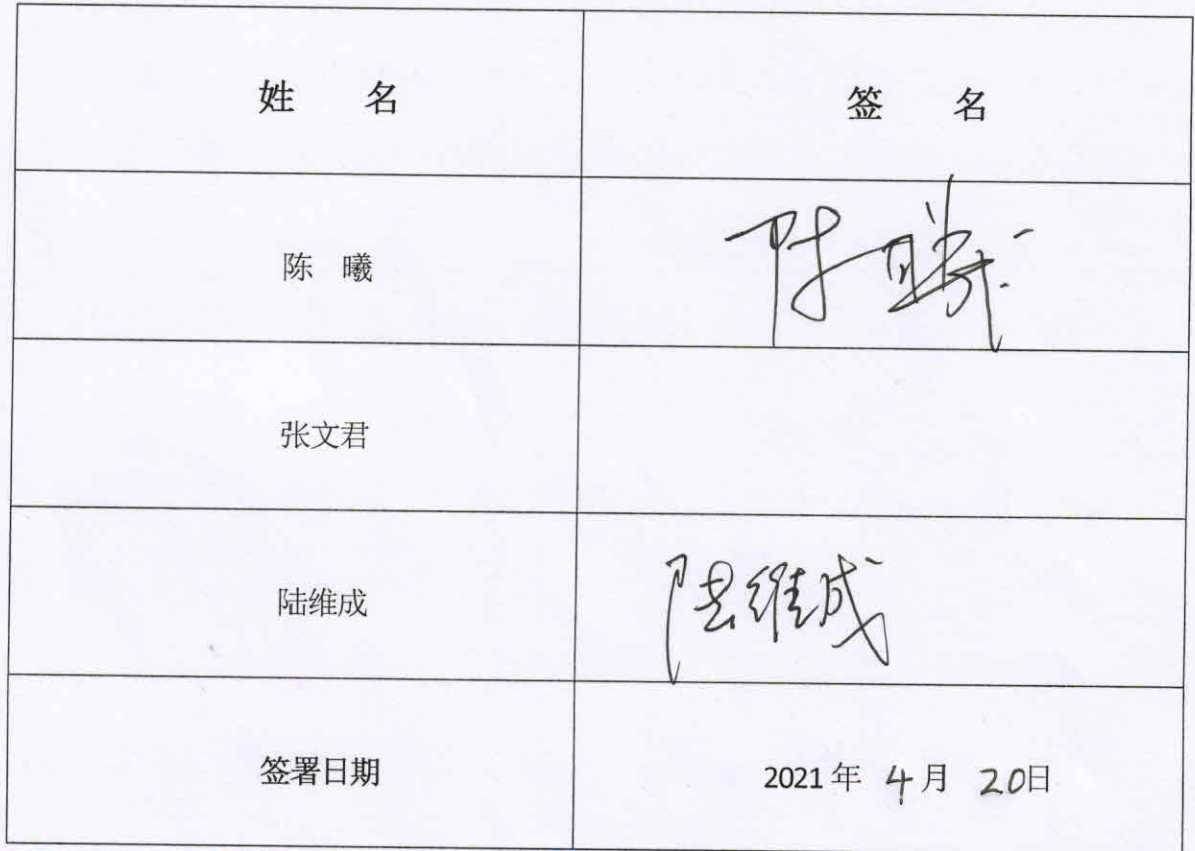 姓 名 签 名
陈 曦 陈曦
张文君
陆维成 陆维成
签署日期 2021年 4月 20日